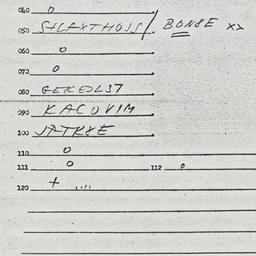 040 0
050 SHLAXTHOJS/ BONSE xx
060 0
070 0
080 GEKEOL37
090 KACOVIM
100 JATRXE
110 0
111 0 112 0
120 + ....